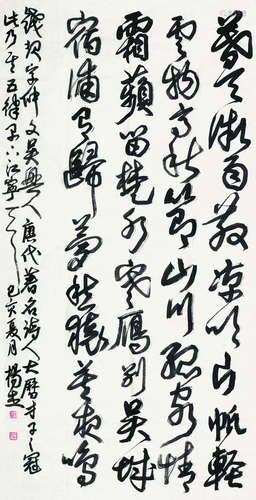 暮天微雨散涼吹片帆輕
雲物高秋節山川孤客情
霜蘋留楚水寒雁別吳城
宿浦有歸夢愁猿莫夜鳴
錢起字仲文吳興人唐代著名詩人大曆十才子之冠
此乃其五律早下江寧一首己亥夏月楊